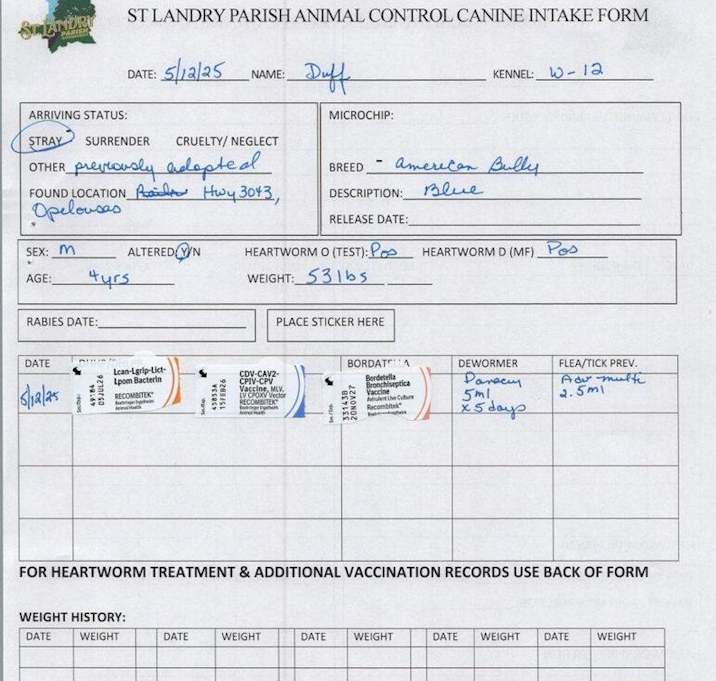 ST LANDRY
PARISH
ST LANDRY PARISH ANIMAL CONTROL CANINE INTAKE FORM
DATE: 5/12/25 NAME: Duff KENNEL: W-12
ARRIVING STATUS:
STRAY SURRENDER CRUELTY/ NEGLECT
OTHER previously adopted
FOUND LOCATION Hwy 3043,
Opelousas
MICROCHIP:
BREED - American Bully
DESCRIPTION: Blue
RELEASE DATE:
SEX: M ALTERED Y/N HEARTWORM O (TEST): Pos HEARTWORM D (MF) Pos
AGE: 4yrs WEIGHT: 53lbs
RABIES DATE: PLACE STICKER HERE
DATE BORDATELLA DEWORMER FLEA/TICK PREV.
5/12/25
Lcan-Lgrip-Lict-
Lpom Bacterin
RECOMBITEK®
Boehringer Ingelheim
Animal Health
49184
05JUL26
CDV-CAV2-
CPIV-CPV
Vaccine, MLV,
LV CPOXV Vector
RECOMBITEK®
Boehringer Ingelheim
Animal Health
43893A
15FEB26
Bordetella
Bronchiseptica
Vaccine
Avirulent Live Culture
Recombitek®
331438
20NOV27
Panacur
5ml
x5days
Adv-multi
2.5ml
FOR HEARTWORM TREATMENT & ADDITIONAL VACCINATION RECORDS USE BACK OF FORM
WEIGHT HISTORY:
DATE WEIGHT DATE WEIGHT DATE WEIGHT DATE WEIGHT DATE WEIGHT